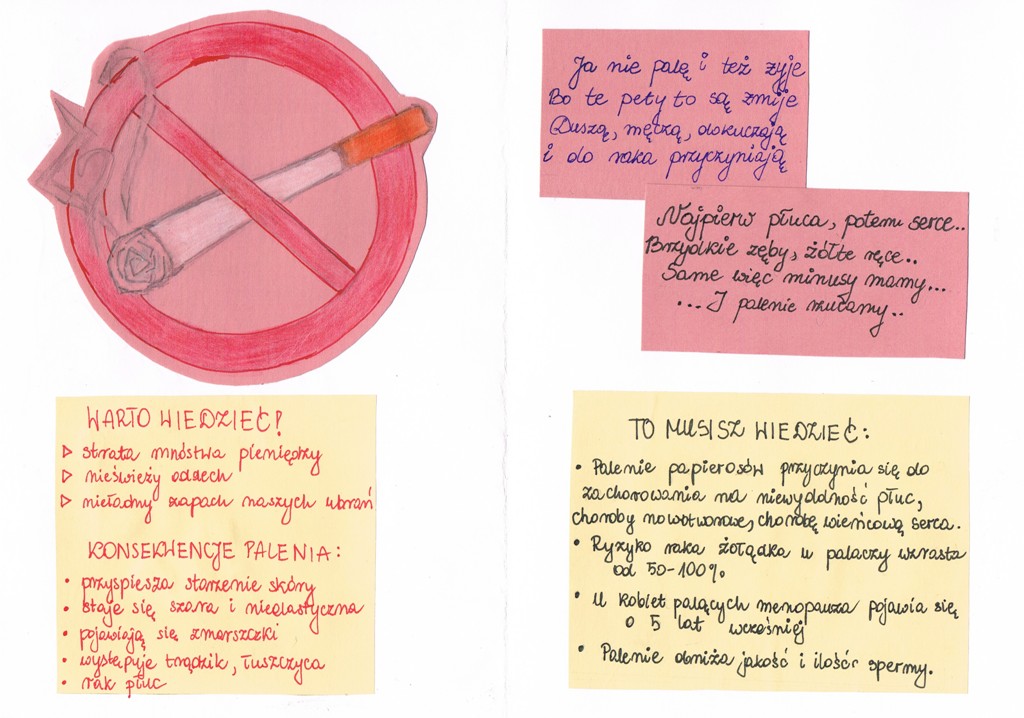 Ja nie palę i też żyje
Bo te pety to są żmije
Duszą, męczą, dokuczają
i do raka przyczyniają
Najpierw płuca, potem serce..
Brzydkie zęby, żółte ręce..
Same więc minusy mamy...
...I palenie rzucamy..
WARTO WIEDZIEĆ!
▷ strata mnóstwa pieniędzy
▷ nieświeży oddech
▷ nieładny zapach naszych ubrań
KONSEKWENCJE PALENIA:
• przyspiesza starzenie skóry
• staje się szara i nieelastyczna
• pojawiają się zmarszczki
• występuje trądzik, łuszczyca
• rak płuc
TO MUSISZ WIEDZIEĆ:
• Palenie papierosów przyczynia się do
zachorowania na niewydolność płuc,
choroby nowotworowe, chorobę wieńcową serca.
• Ryzyko raka żołądka u palaczy wzrasta
od 50-100%
• U kobiet palących menopauza pojawia się
o 5 lat wcześniej
• Palenie obniża jakość i ilość spermy.